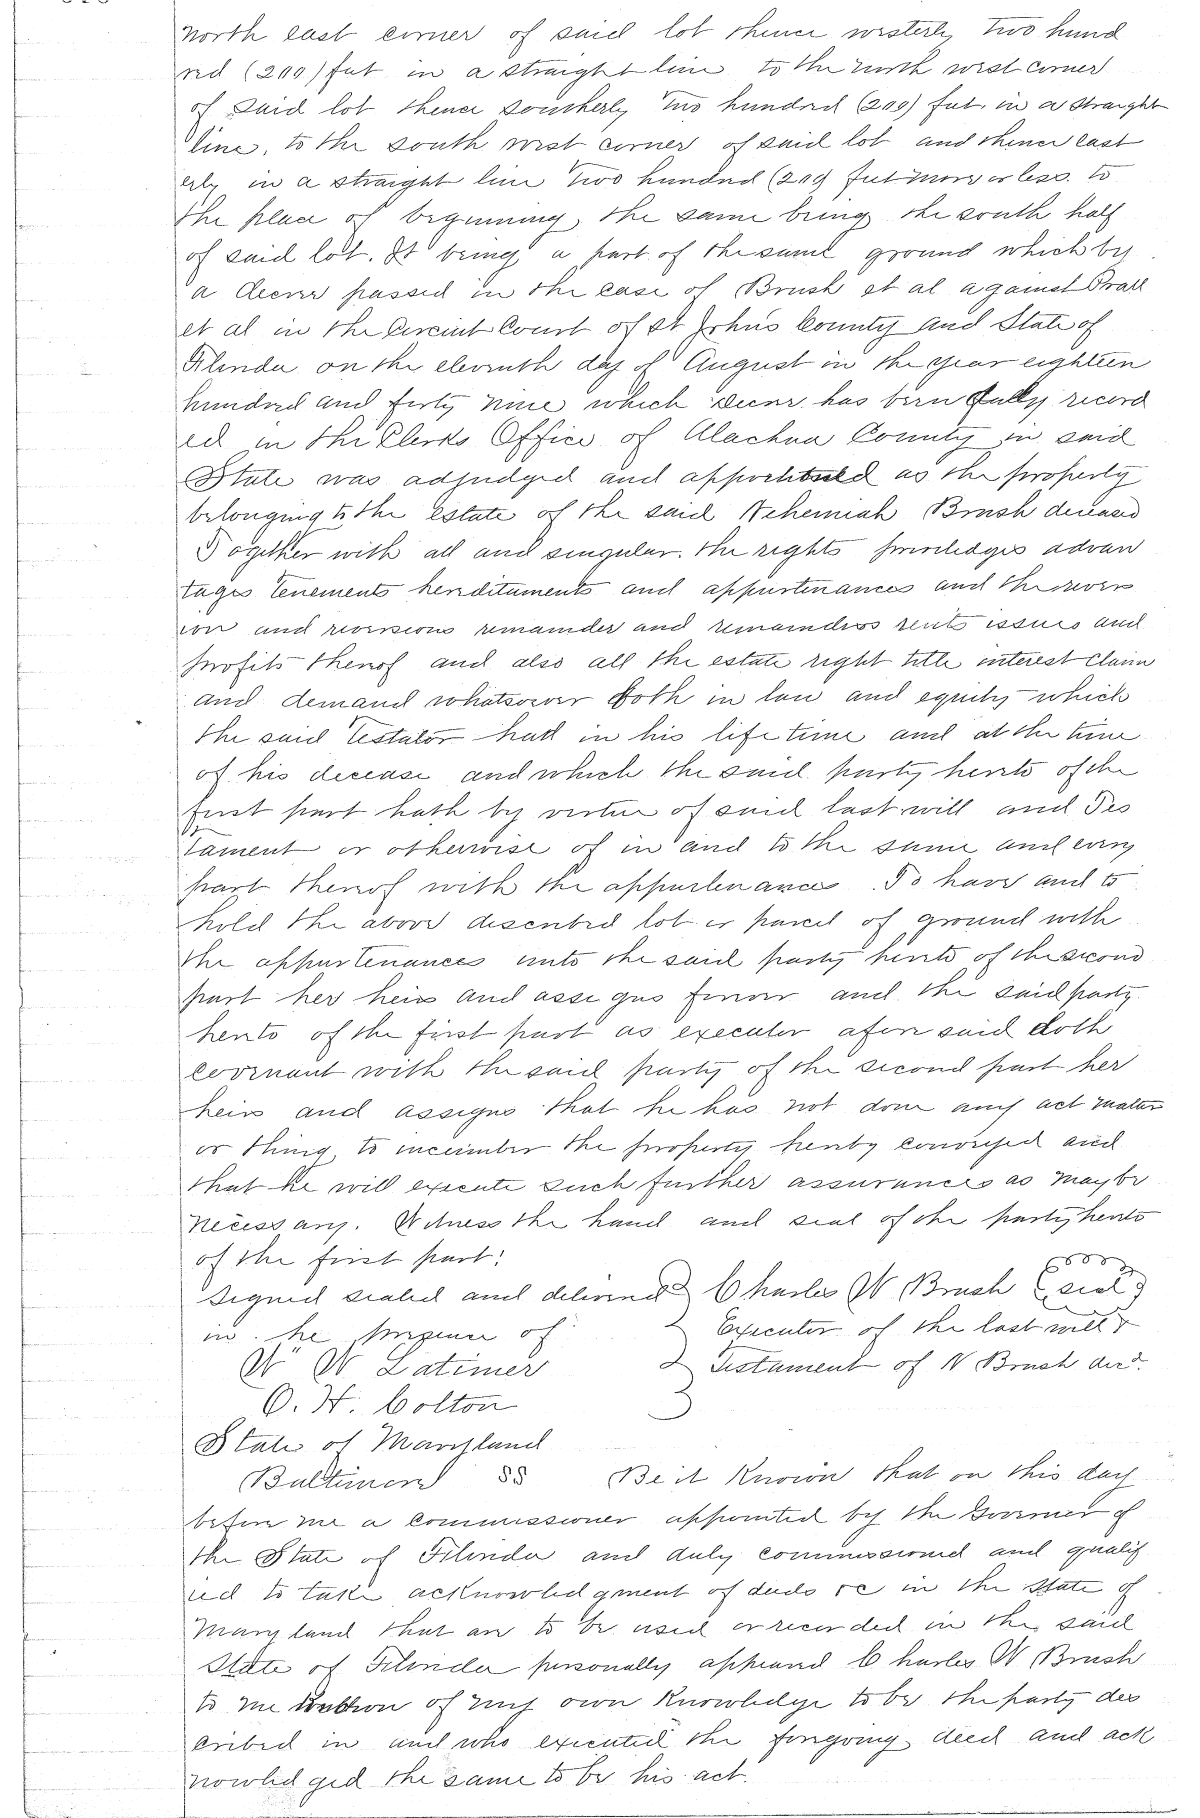 north east corner of said lot thence westerly two hund
red (200) feet in a straight line to the north west corner
of said lot thence southerly two hundred (200) feet in a straight
line, to the south west corner of said lot and thence east
erly in a straight line two hundred (200) feet more or less to
the place of beginning, the same being the south half
of said lot. It being a part of the same ground which by
a decree passed in the case of Brush et al against Prall
et al in the Circuit Court of St Johns County and State of
Florida on the eleventh day of August in the year eighteen
hundred and forty nine which decree has been fully record
ed in the Clerks Office of Alachua County in said
State was adjudged and apportioned as the property
belonging to the estate of the said Nehemiah Brush deceased
Together with all and singular the rights priviledges advan
tages tenements hereditaments and appurtenances and the revers
ion and reversions remainder and remainders rents issues and
profits thereof and also all the estate right title interest claim
and demand whatsoever both in law and equity which
the said Testator had in his life time and at the time
of his decease and which the said party hereto of the
first part hath by virtue of said last will and Tes
tament or otherwise of in and to the same and every
part thereof with the appurtenances. To have and to
hold the above described lot or parcel of ground with
the appurtenances unto the said party hereto of the second
part her heirs and assigns forever and the said party
hereto of the first part as executor afore said doth
covenant with the said party of the second part her
heirs and assigns that he has not done any act matter
or thing to incumber the property hereby conveyed and
that he will execute such further assurances as may be
necessary. Witness the hand and seal of the party hereto
of the first part.
Signed sealed and delivered Charles W Brush (seal)
in he presence of Executor of the last will &
W W Latimer Testament of N Brush decd.
O. H. Colton
State of Maryland
Baltimore SS Be it Known that on this day
before me a commissioner appointed by the Governer of
the State of Florida and duly commissioned and qualif
ied to take acknowledgment of deeds &c in the State of
Maryland that are to be used or recorded in the said
State of Florida personally appeared Charles W Brush
to me known of my own Knowledge to be the party des
cribed in and who executed the foregoing deed and ack
nowledged the same to be his act.